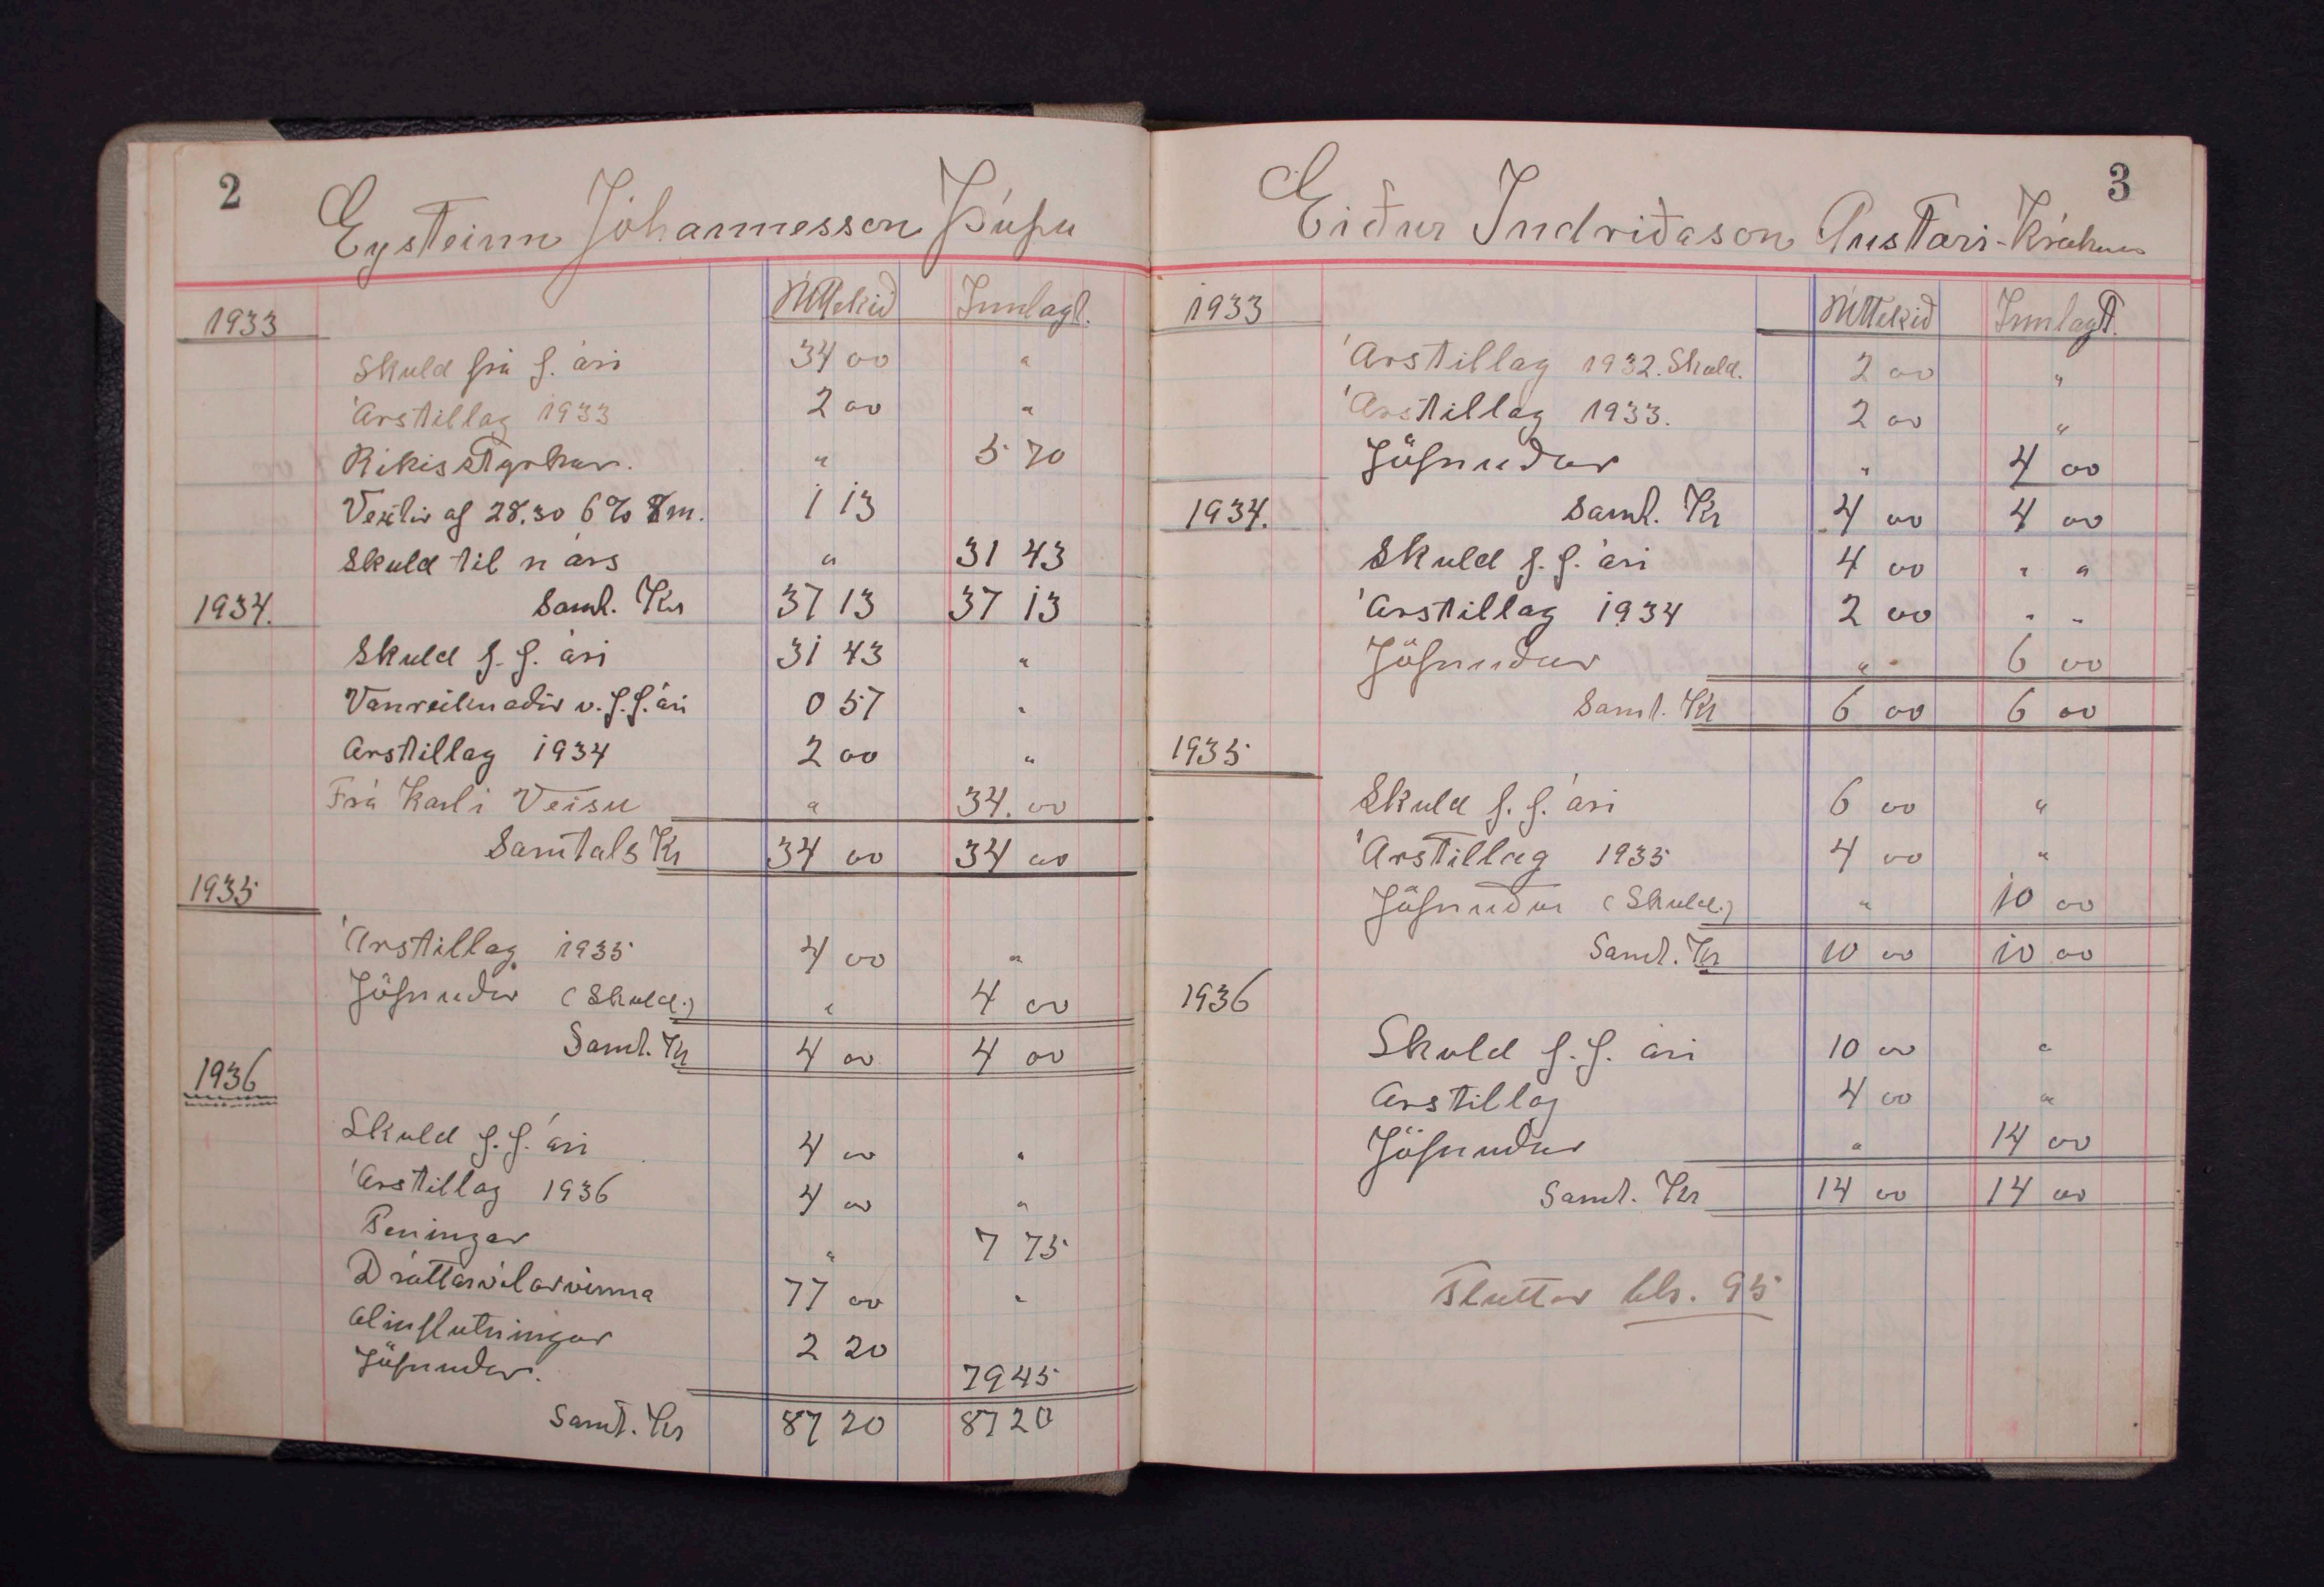 2
Eysteinn Jóhannesson Þúfu
Úttekið Innlagt.
1933
Skuld frá f. ári 34 00 "
Árstillag 1933 2 00 "
Ríkisstyrkur. " 5 70
Vextir af 28.30 6% 8m. 1 13
Skuld til n árs " 31 43
1934. Saml. Kr 37 13 37 13
Skuld f. f. ári 31 43 "
Vanreiknaðir v. f. f. ári 0 57 "
Arstillag 1934 2 00 "
Frá Karli Veisu " 34.00
Samtals Kr 34 00 34 00
1935
Árstillag 1935 4 00 "
Jöfnuður (Skuld.) " 4 00
Saml. Kr 4 00 4 00
1936
Skuld f. f. ári 4 00 "
Árstillag 1936 4 00 "
Peningar " 7 75
Dráttarvélarvinna 77 00 "
2 20
Jöfnuður. 79 45
Samt. Kr 87 20 87 20
3
Eiður Indriðason Austari-Krókum
Úttekið Innlagt.
1933
Árstillag 1932. Skuld. 2 00 "
Árstillag 1933. 2 00 "
Jöfnuður " 4 00
1934. Saml. Kr 4 00 4 00
Skuld f. f. ári 4 00 " "
Árstillag 1934 2 00 " "
Jöfnuður " " 6 00
Saml. Kr 6 00 6 00
1935
Skuld f. f. ári 6 00 "
Árstillag 1935 4 00 "
Jöfnuður (Skuld.) " 10 00
Saml. Kr 10 00 10 00
1936
Skuld f. f. ári 10 00 "
Arstillag 4 00 "
Jöfnuður " 14 00
Saml. Kr 14 00 14 00
Fluttar bls. 95